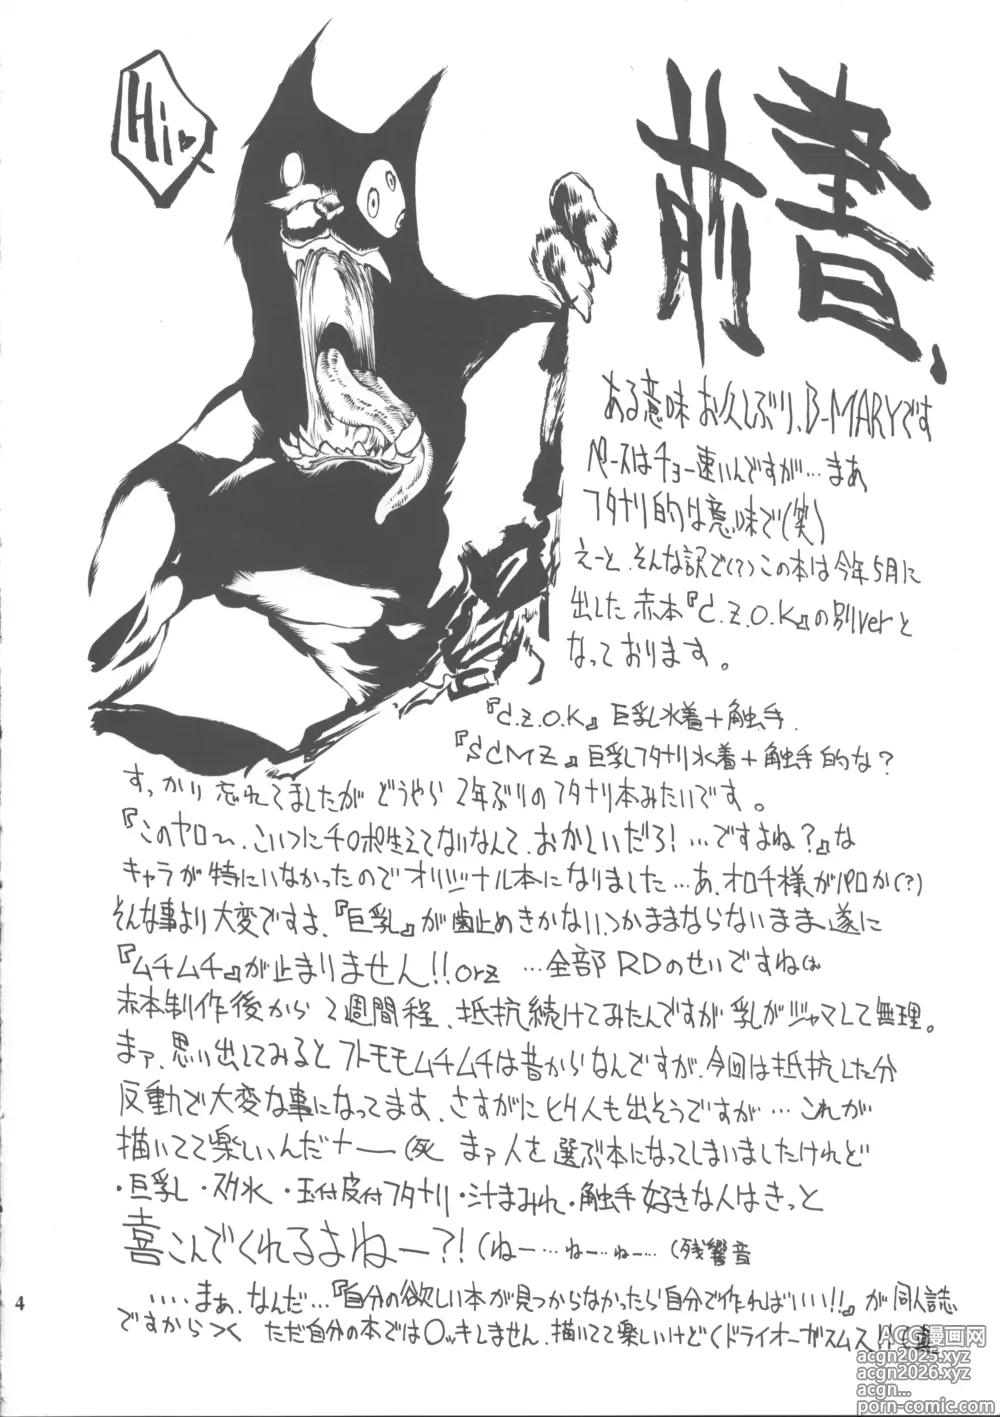 Hi♥
前書、
ある意味お久しぶり、B-MARYです
ペースはチョー速いんですが…まあ
フタナリ的な意味で(笑)
えーと、そんな訳で(?)この本は今年5月に
出した赤本『C.Z.O.K』の別verと
なっております。
『C.Z.O.K』巨乳水着+触手.
『SCMZ』巨乳フタナリ水着+触手的な?
すっかり忘れてましたがどうやら2年ぶりのフタナリ本みたいです。
『このヤロ〜、こいつにチ○ポ生えてないなんて、おかしいだろ!…ですよね?』な
キャラが特にいなかったのでオリジナル本になりました…あ、オロチ様がパロか(?)
そんな事より大変ですよ、『巨乳』が歯止めきかないつかままならないまま、遂に
『ムチムチ』が止まりません!!orz …全部RDのせいですね
赤本制作後から2週間程、抵抗続けてみたんですが乳がジャマして無理。
まァ、思い出してみるとフトモモムチムチは昔からなんですが、今回は抵抗した分
反動で大変な事になってます、さすがにヒク人も出そうですが…これが
描いてて楽しいんだナー(死 まァ人を選ぶ本になってしまいましたけれど
・巨乳・スク水・玉付皮付フタナリ・汁まみれ・触手好きな人はきっと
喜こんでくれるよねー?!(ねー…ねー…ねー…(残響音
….まぁ、なんだ…『自分の欲しい本が見つからなかったら自分で作ればいい!!』が同人誌
ですからつく ただ自分の本では○ッキしません、描いてて楽しいけど(ドライオーガスムス!!
4
ACG漫画网
acgn2025.xyz
acgn2026.xyz
acgn...
porn-comic.com